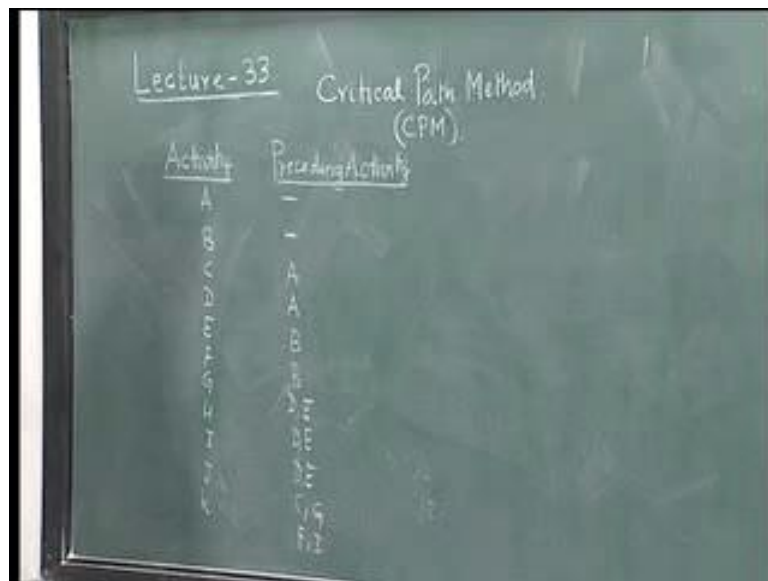 Lecture-33
Critical Path Method
(CPM).
Activity Preceding Activity
A -
B -
C A
D A
E B
F B
G D, E
H D, E
I D, E
J C, G
K F, I